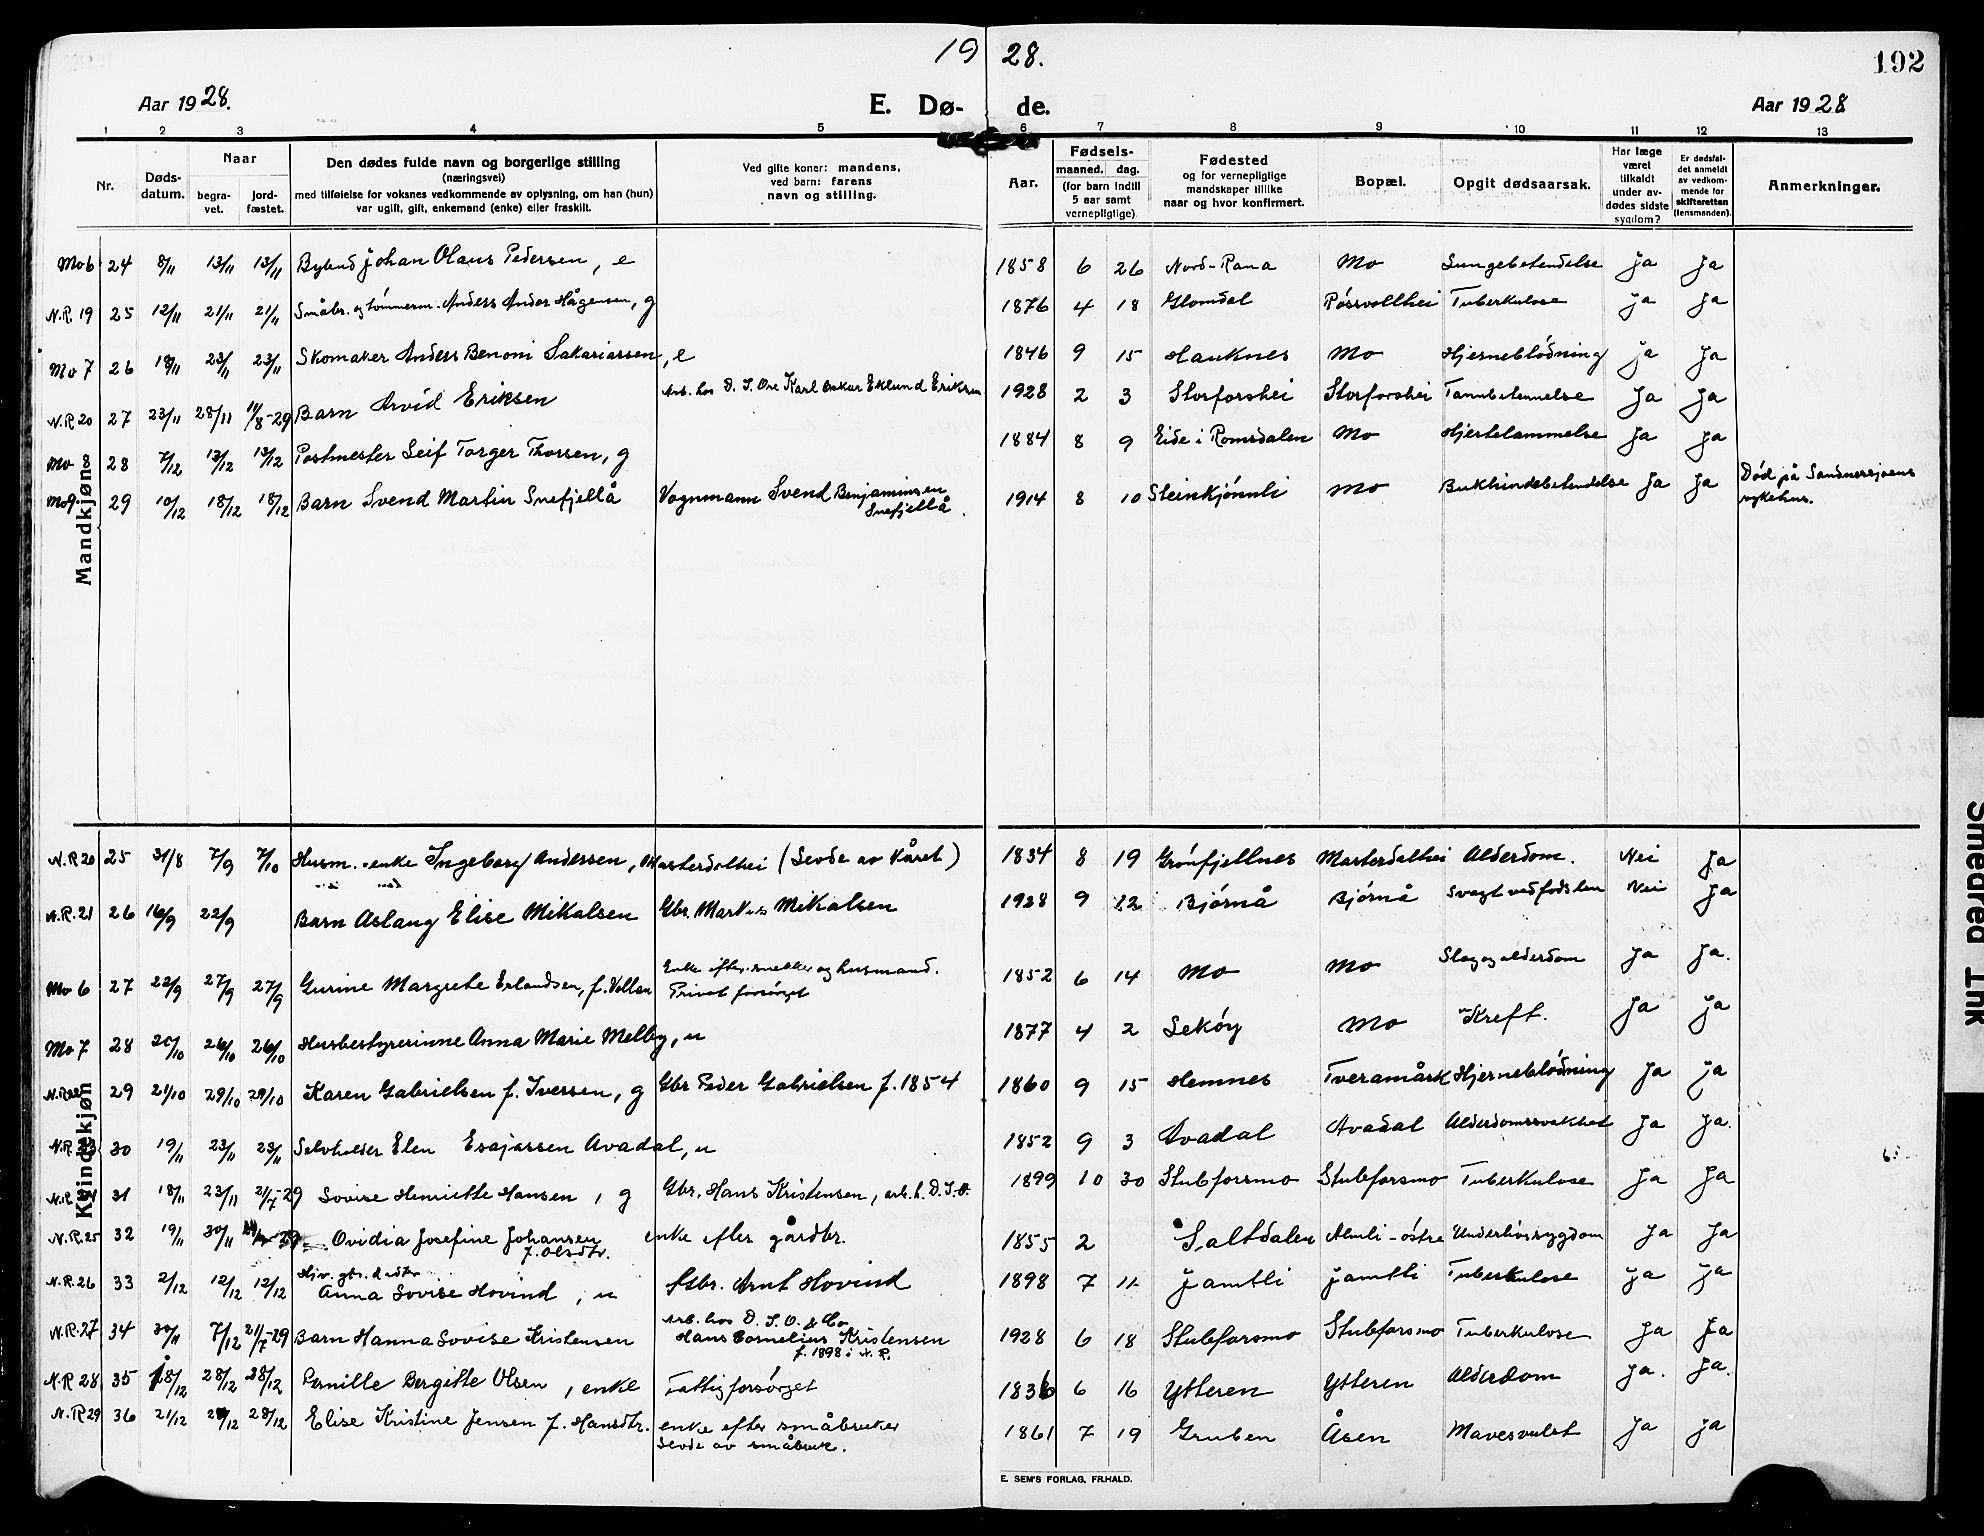 19 28.
192
Aar 1928.
E. Dø- de.
Aar 1928
1 2 3 4 5 6 7 8 9 10 11 12 13
Nr.
Døds-datum.
Naar
begra-vet.
jord-fæstet.
Den dødes fulde navn og borgerlige stilling
(næringsvei)
med tilføielse for voksnes vedkommende av oplysning, om han (hun)
var ugift, gift, enkemand (enke) eller fraskilt.
Ved gifte koner: mandens,
ved barn: farens
navn og stilling.
Aar.
Fødsels-
maaned. dag.
(for barn indtil
5 aar samt
vernepligtige)
Fødested
og for vernepligtige
mandskaper tillike
naar og hvor konfirmert.
Bopæl.
Opgit dødsaarsak.
Har læge
været
tilkaldt
under av-
dødes sidste
sygdom?
Er dødsfal-
det anmeldt
av vedkom-
mende for
skifteretten
(lensmanden).
Anmerkninger.
Mandkjøn
Mo 6 24 8/11 13/11 13/11 Johan Olaus Pedersen, e 1858 6 26 Nord-Rana Mo Lungebetendelse Ja Ja
N.R. 19 25 12/11 21/11 21/11 Småbr. og tømmerm. Anders Andor Hågensen, g 1876 4 18 Glomdal Røssvollhei Tuberkulose Ja Ja
Mo 7 26 18/11 23/11 23/11 Skomaker Anders Benoni Sakariassen, e 1846 9 15 Hauknes Mo Hjerneblødning Ja Ja
N.R. 20 27 23/11 28/11 11/8-29 Barn Arvid Eriksen Arb. hos D. I. Ore Karl Oskar Eklund Eriksen 1928 2 3 Storforshei Storforshei Ja Ja
Mo 8 28 7/12 13/12 13/12 Postmester Leif Torger Thorsen, g 1884 8 9 Eide i Romsdalen Mo Hjertelammelse Ja Ja
Mo 9 29 10/12 18/12 18/12 Barn Svend Martin Snefjellå Vognmann Svend Benjaminsen
Snefjellå. 1914 8 10 Steinkjønnli Mo Bukhindebetendelse Ja Ja Død på Sandnessjøens
sykehus.
Kvindekjøn
N.R. 20 25 31/8 7/9 7/10 Husm.-enke Ingeborg Andersen, Marterdalhei (Levde av kåret) 1834 8 19 Grønfjellnes Marterdalhei Alderdom. Nei Ja
N.R. 21 26 16/9 22/9 Barn Aslaug Elise Mikalsen Gbr. Markus Mikalsen 1928 9 12 Bjørnå Bjørnå Svagt ved fødselen Nei Ja
Mo 6 27 22/9 27/9 27/9 Gurine Margrete Erlandsen, f. Vollan Enke efter snekker og husmand.
Privat forsørget 1852 6 14 Mo Mo Slag og alderdom Ja Ja.
Mo 7 28 20/10 26/10 26/10 Husbestyrerinne Anna Marie Melby, u 1877 4 2 Lekøy Mo Kreft. Ja Ja
N.R. 22 29 21/10 29/10 29/10 Karen Gabrielsen f. Iversen, g Gbr Peder Gabrielsen f. 1854 1860 9 15 Hemnes Tveramårk Hjerneblødning Ja Ja
N.R. 23 30 19/11 23/11 23/11 Selvholder Elen Esajassen Avadal, u 1852 9 3 Avadal Avadal Alderdomssvakhet Ja Ja.
N.R. 24 31 18/11 23/11 21/7-29 Lovise Henriette Hansen, g Gbr. Hans Kristensen, arb. h. D.I.O. 1899 10 30 Stubforsmo Stubforsmo Tuberkulose Ja Ja
N.R. 25 32 19/11 30/11 Ovidia Josefine Johansen
f. Olsdtr. enke efter gårdbr. 1855 2 Saltdalen Almli-østre Underlivssygdom Ja Ja
N.R. 26 33 2/12 12/12 12/12 Hjv. gbr. datter
Anna Lovise Hovind, u Gbr. Arnt Hovind 1898 7 11 Jamtli Jamtli Tuberkulose Ja Ja
N.R. 27 34 30/11 7/12 21/7-29 Barn Hanna Lovise Kristensen Arb. hos D. I. O. & Co
Hans Cornelius Kristensen
f. 1898 i N. R. 1928 6 18 Stubforsmo Stubforsmo Tuberkulose Ja Ja
N.R. 28 35 18/12 28/12 28/12 Pernille Bergitte Olsen, enke Fattigforsørget 1836 6 16 Ytteren Ytteren Alderdom Ja. Ja.
N.R. 29 36 21/12 28/12 28/12 Elise Kristine Jensen f. Hansdtr. enke efter småbruker
Levde av småbruk. 1861 7 19 Gruben Åsen Mavesvulst Ja Ja
E. SEM'S FORLAG, FR.HALD.
Smeared Ink